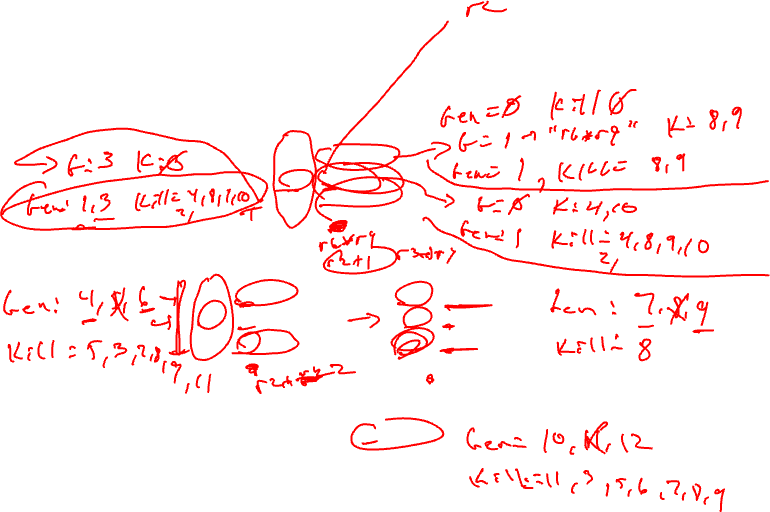 r2
Gen = ∅ Kill ∅
G = 1 → "r6*r9" K = 8,9
Gen = 1, Kill = 8,9
→ G = 3 K = ∅
Gen: 1,3 Kill = 4,8,9,10
2,
G = ∅ K = 4,10
Gen = 1 Kill = 4,8,9,10
2,
r6*r9
r2+1
Gen: 4, 5, 6
Kill = 5,3,2,8,
9,11
Gen: 7, 8, 9
Kill = 8
Gen = 10, 11, 12
Kill = 11, 3, 5, 6, 2, 8, 9